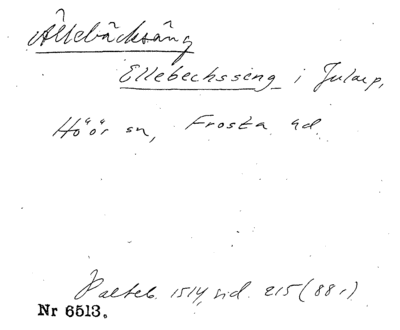 Ällebäcksäng
Ellebechsseng i Jularp,
Höör sn, Frosta hd.
Palteb. 1514, sid. 215 (88r)
Nr 6513.